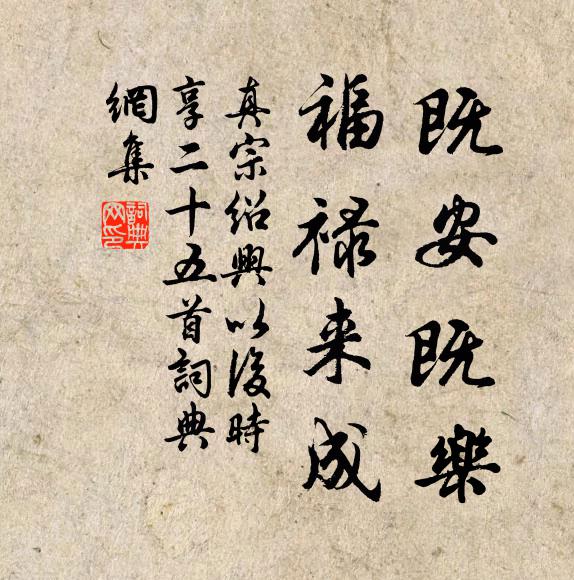 既安既樂
福禄来成
真宗紹興以後時
享二十五首詞典
網集
詞典
网印